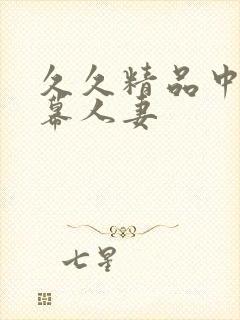 久久精品中
幕人妻
七星